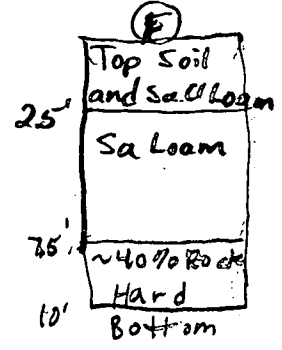 F
Top Soil
and Sa Cl Loam
25'
Sa Loam
75'
~40% Rock
Hard
10'
Bottom